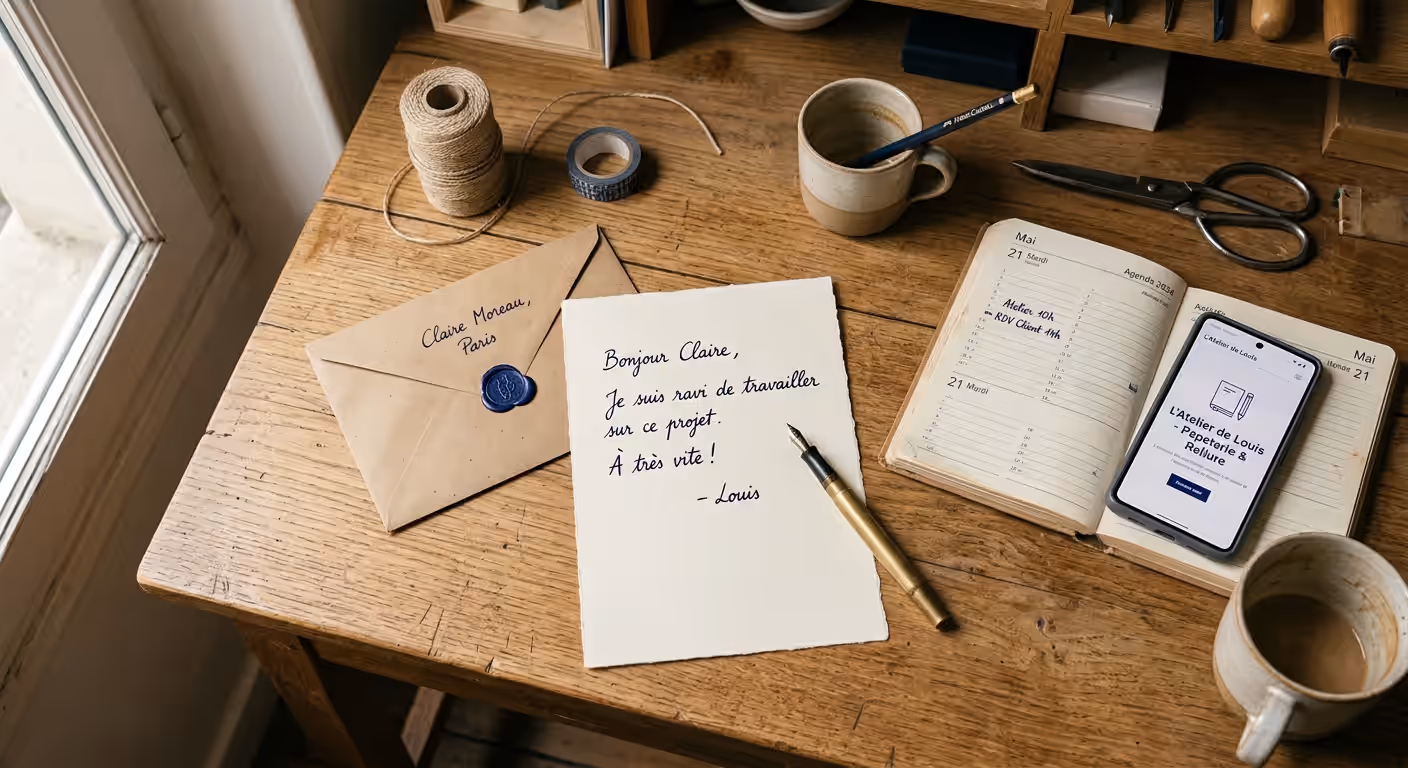 Claire Moreau,
Paris
Bonjour Claire,
Je suis ravi de travailler
sur ce projet.
À très vite !
– Louis
Mai
21
Agenda
Atelier 10h
RDV Client 14h
21 Mardi
Mai
21
L'Atelier de Louis
L'Atelier de Louis
- Papeterie &
Reliure